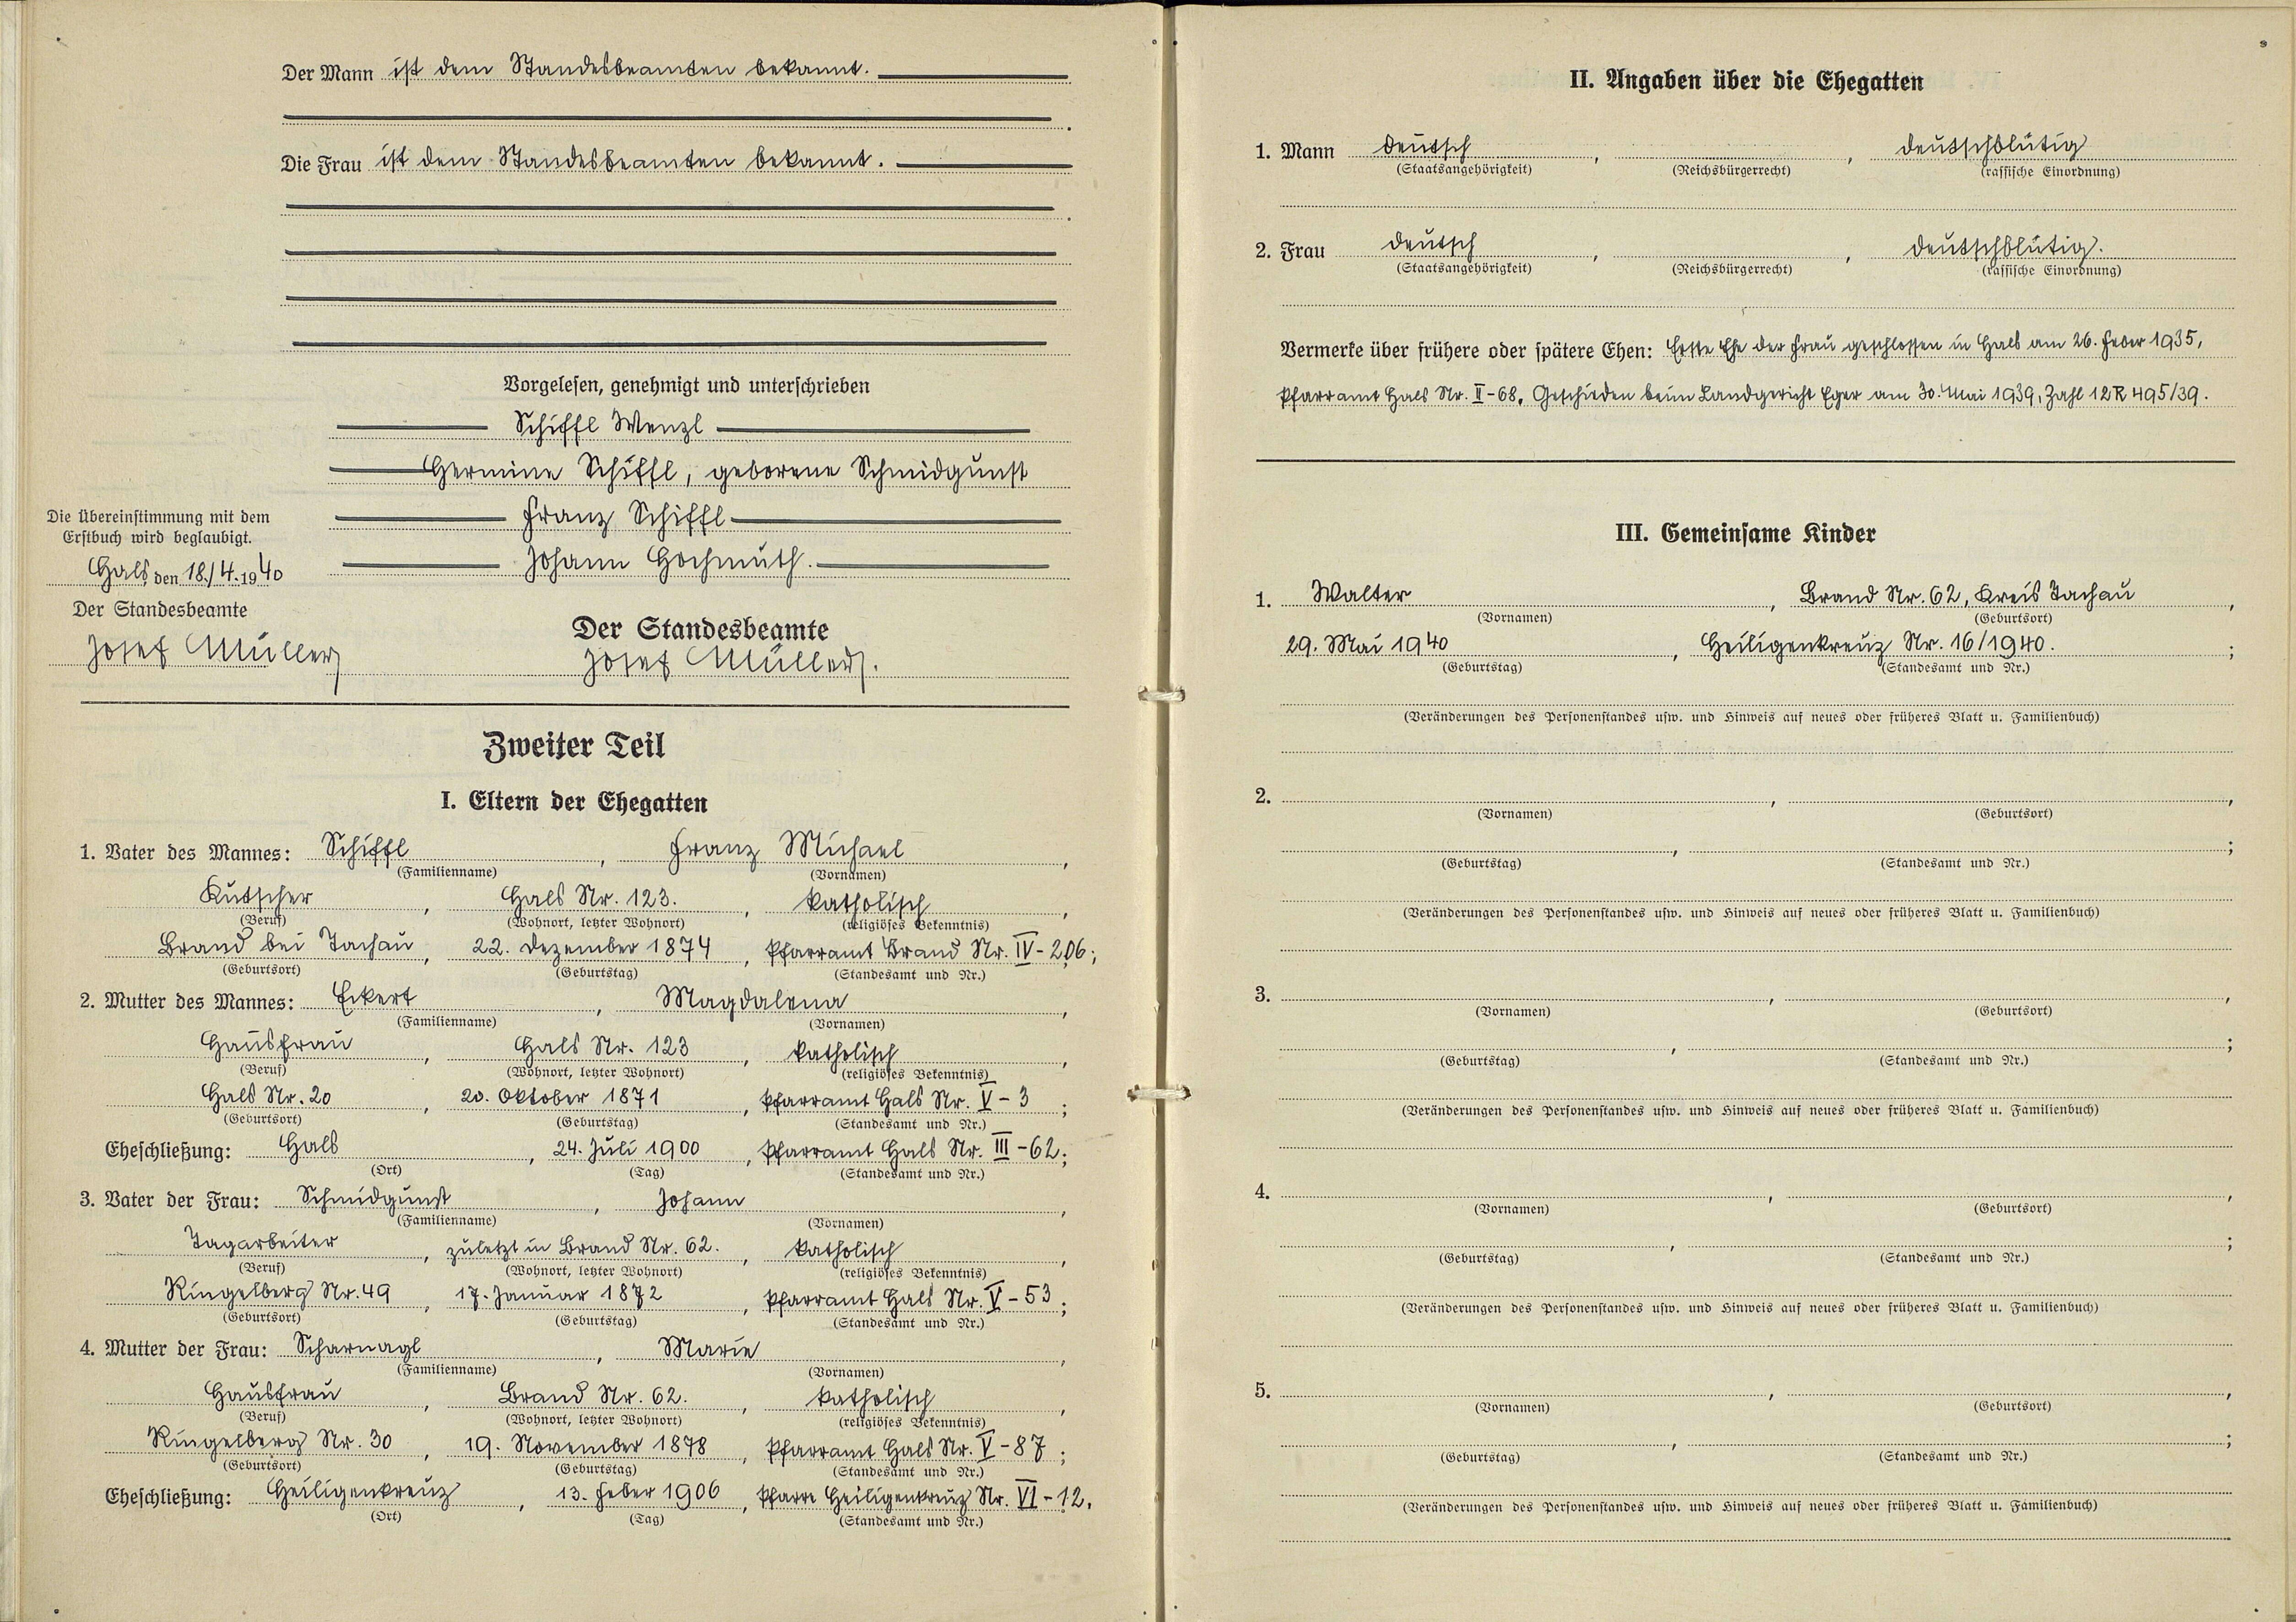 Der Mann ist dem Standesbeamten bekannt.
Die Frau ist dem Standesbeamten bekannt.
Vorgelesen, genehmigt und unterschrieben
Schiffl Wenzl
Hermine Schiffl, geborene Schmidgunst
Franz Schiffl
Johann Hochmuth.
Die Übereinstimmung mit dem
Erstbuch wird beglaubigt.
Hals, den 18./4. 1940
Der Standesbeamte
Josef Müller
Der Standesbeamte
Josef Müller.
Zweiter Teil
I. Eltern der Ehegatten
1. Vater des Mannes: Schiffl, Franz Michael,
(Familienname) (Vornamen)
Kutscher, Hals Nr. 123., katholisch,
(Beruf) (Wohnort, letzter Wohnort) (religiöses Bekenntnis)
Brand bei Tachau, 22. Dezember 1874, Pfarramt Brand Nr. IV-206;
(Geburtsort) (Geburtstag) (Standesamt und Nr.)
2. Mutter des Mannes: Eckert, Magdalena,
(Familienname) (Vornamen)
Hausfrau, Hals Nr. 123, katholisch,
(Beruf) (Wohnort, letzter Wohnort) (religiöses Bekenntnis)
Hals Nr. 20, 20. Oktober 1871, Pfarramt Hals Nr. V-3;
(Geburtsort) (Geburtstag) (Standesamt und Nr.)
Eheschließung: Hals, 24. Juli 1900, Pfarramt Hals Nr. III-62;
(Ort) (Tag) (Standesamt und Nr.)
3. Vater der Frau: Schmidgunst, Johann,
(Familienname) (Vornamen)
Tagarbeiter, zuletzt in Brand Nr. 62., katholisch,
(Beruf) (Wohnort, letzter Wohnort) (religiöses Bekenntnis)
Ringelberg Nr. 49, 17. Januar 1872, Pfarramt Hals Nr. V-53;
(Geburtsort) (Geburtstag) (Standesamt und Nr.)
4. Mutter der Frau: Scharnagl, Marie,
(Familienname) (Vornamen)
Hausfrau, Brand Nr. 62., katholisch,
(Beruf) (Wohnort, letzter Wohnort) (religiöses Bekenntnis)
Ringelberg Nr. 30, 19. November 1878, Pfarramt Hals Nr. V-87;
(Geburtsort) (Geburtstag) (Standesamt und Nr.)
Eheschließung: Heiligenkreuz, 13. Feber 1906, Pfarre Heiligenkreuz Nr. VI-12.
(Ort) (Tag) (Standesamt und Nr.)
II. Angaben über die Ehegatten
1. Mann deutsch, , deutschblütig
(Staatsangehörigkeit) (Reichsbürgerrecht) (rassische Einordnung)
2. Frau deutsch, , deutschblütig.
(Staatsangehörigkeit) (Reichsbürgerrecht) (rassische Einordnung)
Vermerke über frühere oder spätere Ehen: Erste Ehe der Frau geschlossen in Hals am 26. Feber 1935,
Pfarramt Hals Nr. II-68. Geschieden beim Landgericht Eger am 30. Mai 1939, Zahl 12R 495/39.
III. Gemeinsame Kinder
1. Walter, Brand Nr. 62, Kreis Tachau,
(Vornamen) (Geburtsort)
29. Mai 1940, Heiligenkreuz Nr. 16/1940.;
(Geburtstag) (Standesamt und Nr.)
(Veränderungen des Personenstandes usw. und Hinweis auf neues oder früheres Blatt u. Familienbuch)
2. , ,
(Vornamen) (Geburtsort)
, ;
(Geburtstag) (Standesamt und Nr.)
(Veränderungen des Personenstandes usw. und Hinweis auf neues oder früheres Blatt u. Familienbuch)
3. , ,
(Vornamen) (Geburtsort)
, ;
(Geburtstag) (Standesamt und Nr.)
(Veränderungen des Personenstandes usw. und Hinweis auf neues oder früheres Blatt u. Familienbuch)
4. , ,
(Vornamen) (Geburtsort)
, ;
(Geburtstag) (Standesamt und Nr.)
(Veränderungen des Personenstandes usw. und Hinweis auf neues oder früheres Blatt u. Familienbuch)
5. , ,
(Vornamen) (Geburtsort)
, ;
(Geburtstag) (Standesamt und Nr.)
(Veränderungen des Personenstandes usw. und Hinweis auf neues oder früheres Blatt u. Familienbuch)